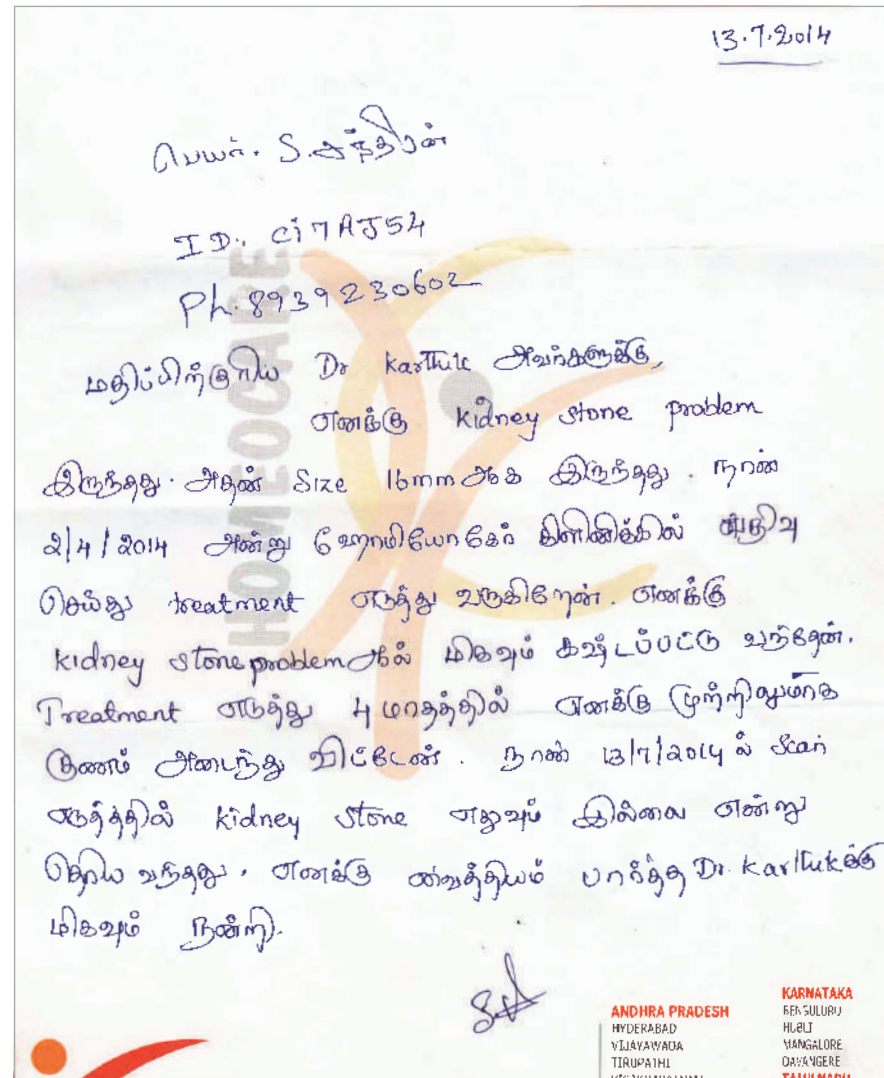 13.7.2014
பெயர். S. சந்திரன்
ID: Ci7AJ54
Ph. 8939230602
HOMEOCARE
மதிப்பிற்குரிய Dr Karthik அவர்களுக்கு,
எனக்கு kidney stone problem
இருந்தது. அதன் Size 16mm ஆக இருந்தது. நான்
2/4/2014 அன்று ஹோமியோகேர் கிளினிக்கில் பதிவு
செய்து treatment எடுத்து வருகிறேன். எனக்கு
kidney stone problem ஆல் மிகவும் கஷ்டப்பட்டு வந்தேன்.
Treatment எடுத்து 4 மாதத்தில் எனக்கு முற்றிலுமாக
குணம் அடைந்து விட்டேன். நான் 13/7/2014 ல் Scan
எடுத்ததில் kidney stone எதுவும் இல்லை என்று
தெரிய வந்தது. எனக்கு வைத்தியம் பார்த்த Dr. Karthikக்கு
மிகவும் நன்றி.
ANDHRA PRADESH
HYDERABAD
VIJAYAWADA
TIRUPATHI
KARNATAKA
BENGULURU
HUBLI
MANGALORE
DAVANGERE
TAMILNADU